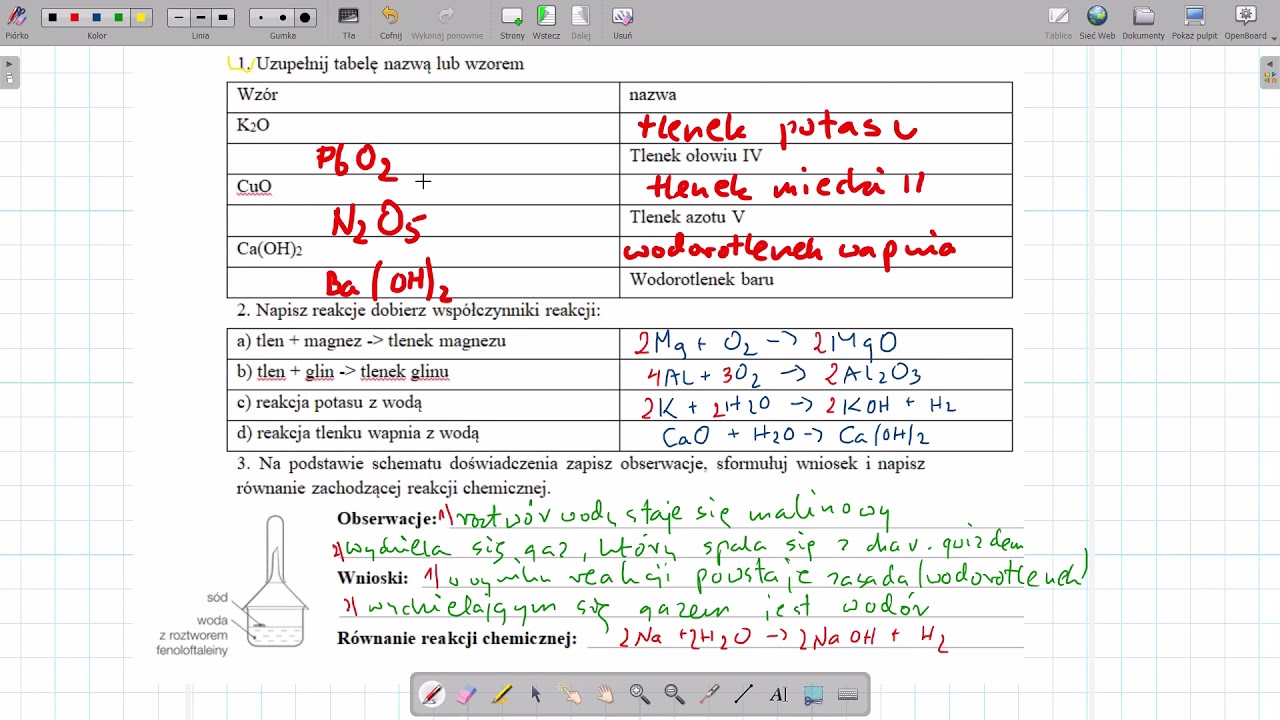 Piórko Kolor Linia Gumka Tła Cofnij Wykonaj ponownie Strony Wstecz Dalej Usuń Tablica Sieć Web Dokumenty Pokaż pulpit OpenBoard
1. Uzupełnij tabelę nazwą lub wzorem
Wzór nazwa
K2O tlenek potasu
PbO2 Tlenek ołowiu IV
CuO tlenek miedzi II
N2O5 Tlenek azotu V
Ca(OH)2 wodorotlenek wapnia
Ba(OH)2 Wodorotlenek baru
2. Napisz reakcje dobierz współczynniki reakcji:
a) tlen + magnez -> tlenek magnezu 2Mg + O2 -> 2MgO
b) tlen + glin -> tlenek glinu 4AL + 3O2 -> 2AL2O3
c) reakcja potasu z wodą 2K + 2H2O -> 2KOH + H2
d) reakcja tlenku wapnia z wodą CaO + H2O -> Ca(OH)2
3. Na podstawie schematu doświadczenia zapisz obserwacje, sformułuj wniosek i napisz
równanie zachodzącej reakcji chemicznej.
Obserwacje: 1) roztwór wody staje się malinowy
2) wydziela się gaz, który spala się z char. gwizdem
Wnioski: 1) w wyniku reakcji powstaje zasada (wodorotlenek)
2) wydzielającym się gazem jest wodór
Równanie reakcji chemicznej: 2Na + 2H2O -> 2NaOH + H2
sód
woda
z roztworem
fenoloftaleiny
AI